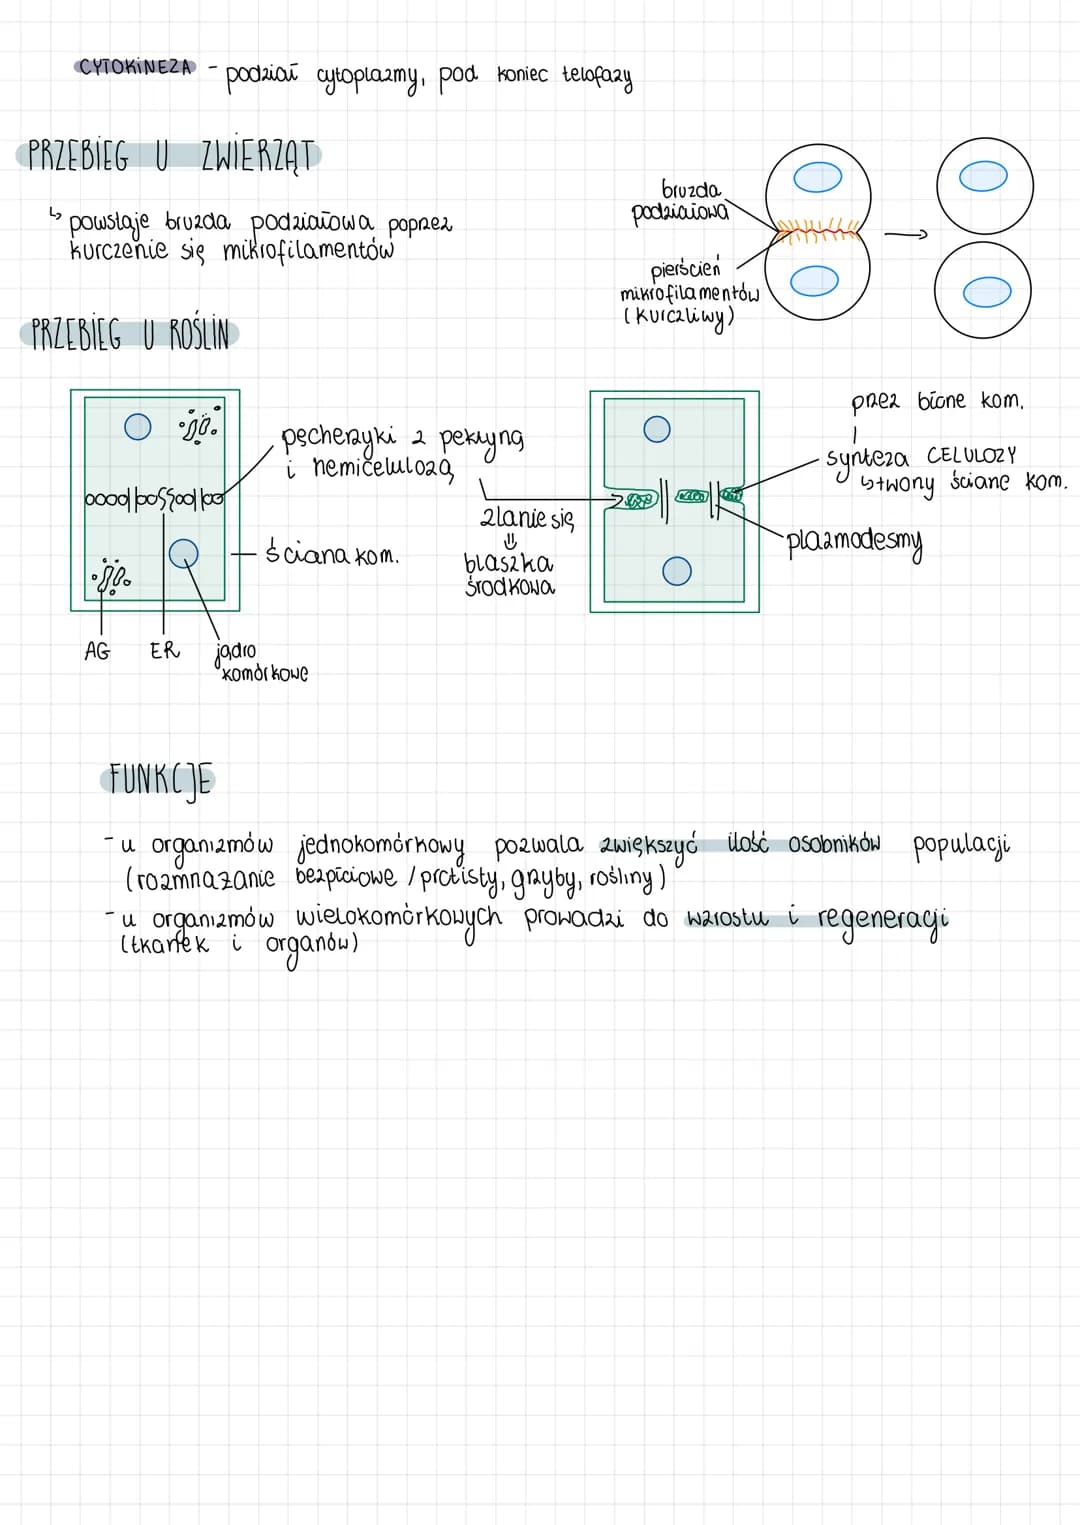 CYTOKINEZA - podział cytoplazmy, pod koniec telofazy
PRZEBIEG U ZWIERZĄT
↳ powstaje bruzda podziałowa poprzez
kurczenie się mikrofilamentów
bruzda
podziałowa
pierścień
mikrofilamentów
(kurczliwy)
PRZEBIEG U ROŚLIN
pęcherzyki z pektyną
i hemicelulozą
zlanie się
⇓
blaszka
środkowa
ściana kom.
AG
ER
jądro
komórkowe
przez błonę kom.
synteza CELULOZY
↳ twony ścianę kom.
plazmodesmy
FUNKCJE
- u organizmów jednokomórkowy pozwala zwiększyć ilość osobników populacji
(rozmnażanie bezpłciowe / protisty, grzyby, rośliny)
- u organizmów wielokomórkowych prowadzi do wzrostu i regeneracji
(tkanek i organów)